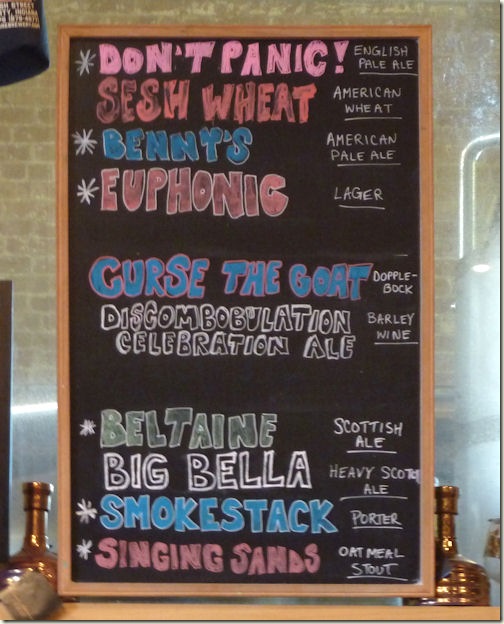 STREET
INDIANA
* DON'T PANIC! ENGLISH
PALE ALE
SESH WHEAT AMERICAN
WHEAT
* BENNY'S AMERICAN
PALE ALE
* EUPHONIC LAGER
CURSE THE GOAT DOPPLE-
BOCK
DISCOMBOBULATION BARLEY
CELEBRATION ALE WINE
* BELTAINE SCOTTISH
ALE
BIG BELLA HEAVY SCOTCH
ALE
* SMOKESTACK PORTER
* SINGING SANDS OATMEAL
STOUT